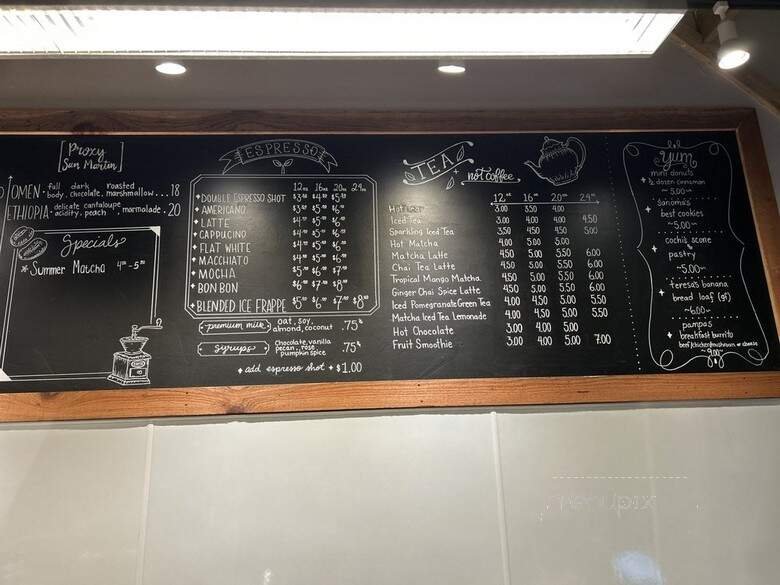 Proxy
San Martin
OMEN full body, dark chocolate, roasted marshmallow... 18
ETHIOPIA delicate acidity, cantaloupe peach marmalade. 20
Specials
* Summer Matcha 4⁰⁰-5⁵⁰
ESPRESSO
12oz 16oz 20oz 24oz
DOUBLE ESPRESSO SHOT
AMERICANO
LATTE
CAPPUCINO
FLAT WHITE
MACCHIATO
MOCHA
BON BON
BLENDED ICE FRAPPE
premium milk oat, soy, almond, coconut .75¢
syrups Chocolate, vanilla pecan, rose, pumpkin spice .75¢
add espresso shot + $1.00
TEA not coffee
12" 16" 20" 24"
Hot 3.00 3.50 4.00
Iced Tea 3.00 4.00 4.50
Sparkling Iced Tea 3.50 4.50 4.50 5.00
Hot Matcha 4.00 5.00 5.00
Matcha Latte 4.50 5.00 5.50 6.00
Chai Tea Latte 4.50 5.00 5.50 6.00
Tropical Mango Matcha 4.50 5.00 5.50 6.00
Ginger Chai Spice Latte 4.50 5.00 5.50 6.00
Iced Pomegranate Green Tea 4.00 4.50 5.00 5.50
Matcha Iced Tea Lemonade 4.00 4.50 5.00 5.50
Hot Chocolate 3.00 4.00 5.00
Fruit Smoothie 3.00 4.00 5.00 7.00
Yum
mini donuts
½ dozen cinnamon
~ 5.00 ~
Sonoma's
best cookies
~5.00~
cochi's scone
pastry
~5.00~
teresa's banana
bread loaf (gf)
~6.00~
pampas
breakfast burrito
beef/chicken/mushroom or cheese
~9.00~